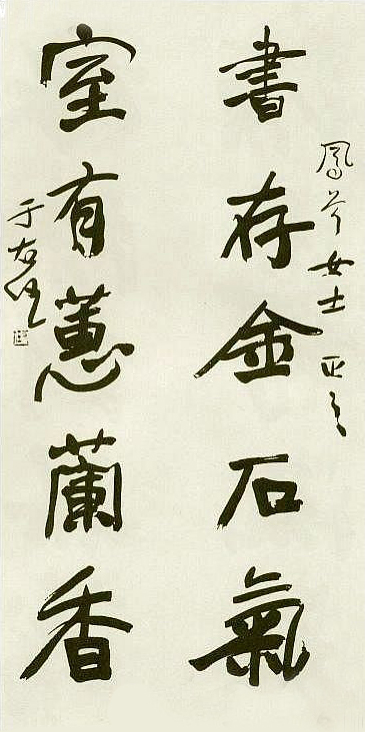 鳳 女士 正之
書存金石氣
室有蕙蘭香
于右任